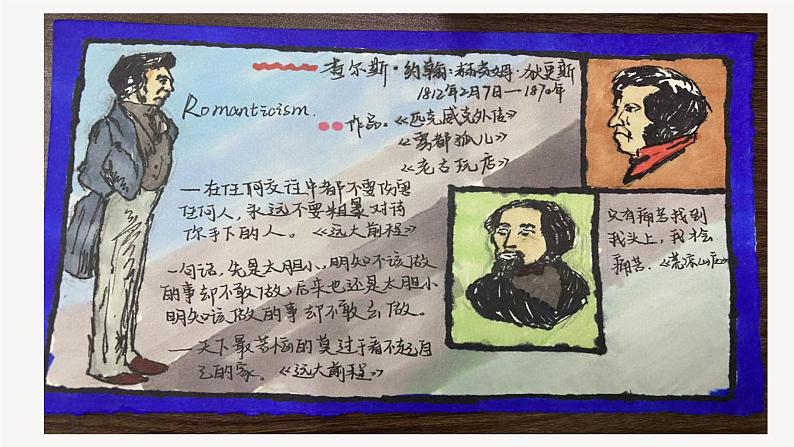 查尔斯·约翰·赫芙姆·狄更斯
1812年2月7日—1870年
Romanticism.
作品:《匹克威克外传》
《雾都孤儿》
《老古玩店》
—在任何交往中都不要伤害
任何人,永远不要粗暴对待
你手下的人。《远大前程》
一句话,先是太胆小,明知不该做
的事却不敢不做,后来也还是太胆小
明知该做的事却不敢去做。
—天下最苦恼的莫过于看不起自
己的家。《远大前程》
只有痛苦找到
我头上,我才会
痛苦.《荒凉山庄》